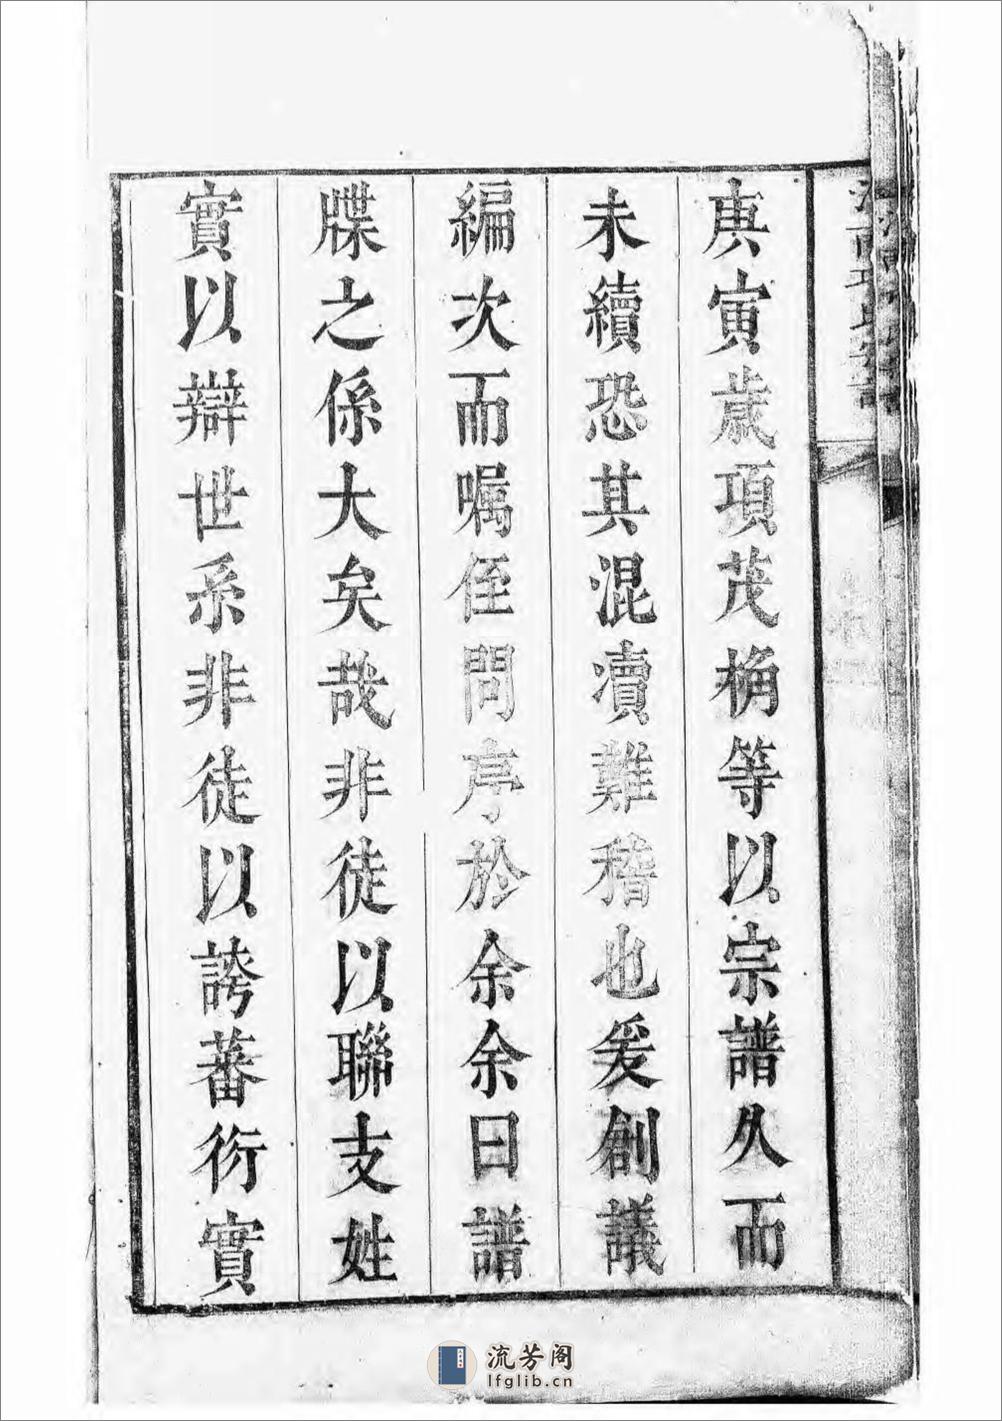 庚寅歲項茂桷等以宗譜久而
未續恐其混瀆難稽也爰創議
編次而嘱侄問序於余余曰譜
牒之係大矣哉非徒以聯支姓
實以辯世系非徒以誇蕃衍實
流芳阁
lfglib.cn